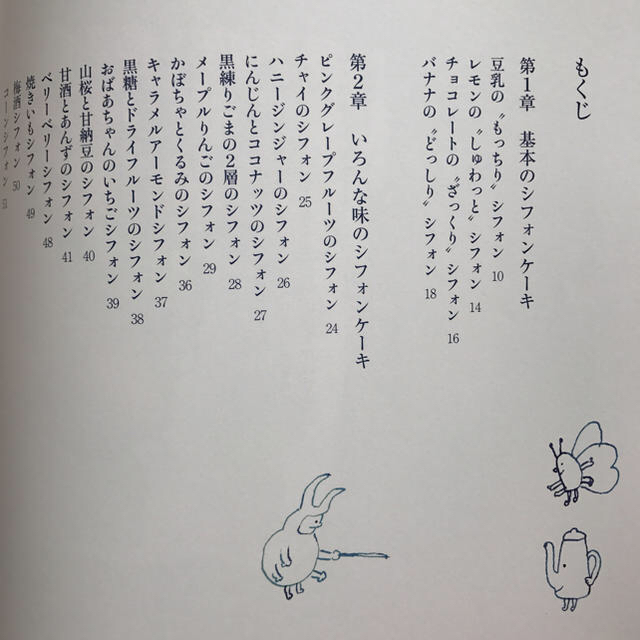 もくじ
第1章 基本のシフォンケーキ
豆乳の〝もっちり〟シフォン 10
レモンの〝しゅわっと〟シフォン 14
チョコレートの〝ざっくり〟シフォン 16
バナナの〝どっしり〟シフォン 18
第2章 いろんな味のシフォンケーキ
ピンクグレープフルーツのシフォン 24
チャイのシフォン 25
ハニージンジャーのシフォン 26
にんじんとココナッツのシフォン 27
黒練りごまの2層のシフォン 28
メープルりんごのシフォン 29
かぼちゃとくるみのシフォン 36
キャラメルアーモンドシフォン 37
黒糖とドライフルーツのシフォン 38
おばあちゃんのいちごシフォン 39
山桜と甘納豆のシフォン 40
甘酒とあんずのシフォン 41
ベリーベリーシフォン 48
焼きいもシフォン 49
梅酒シフォン 50
コーンシフォン 51